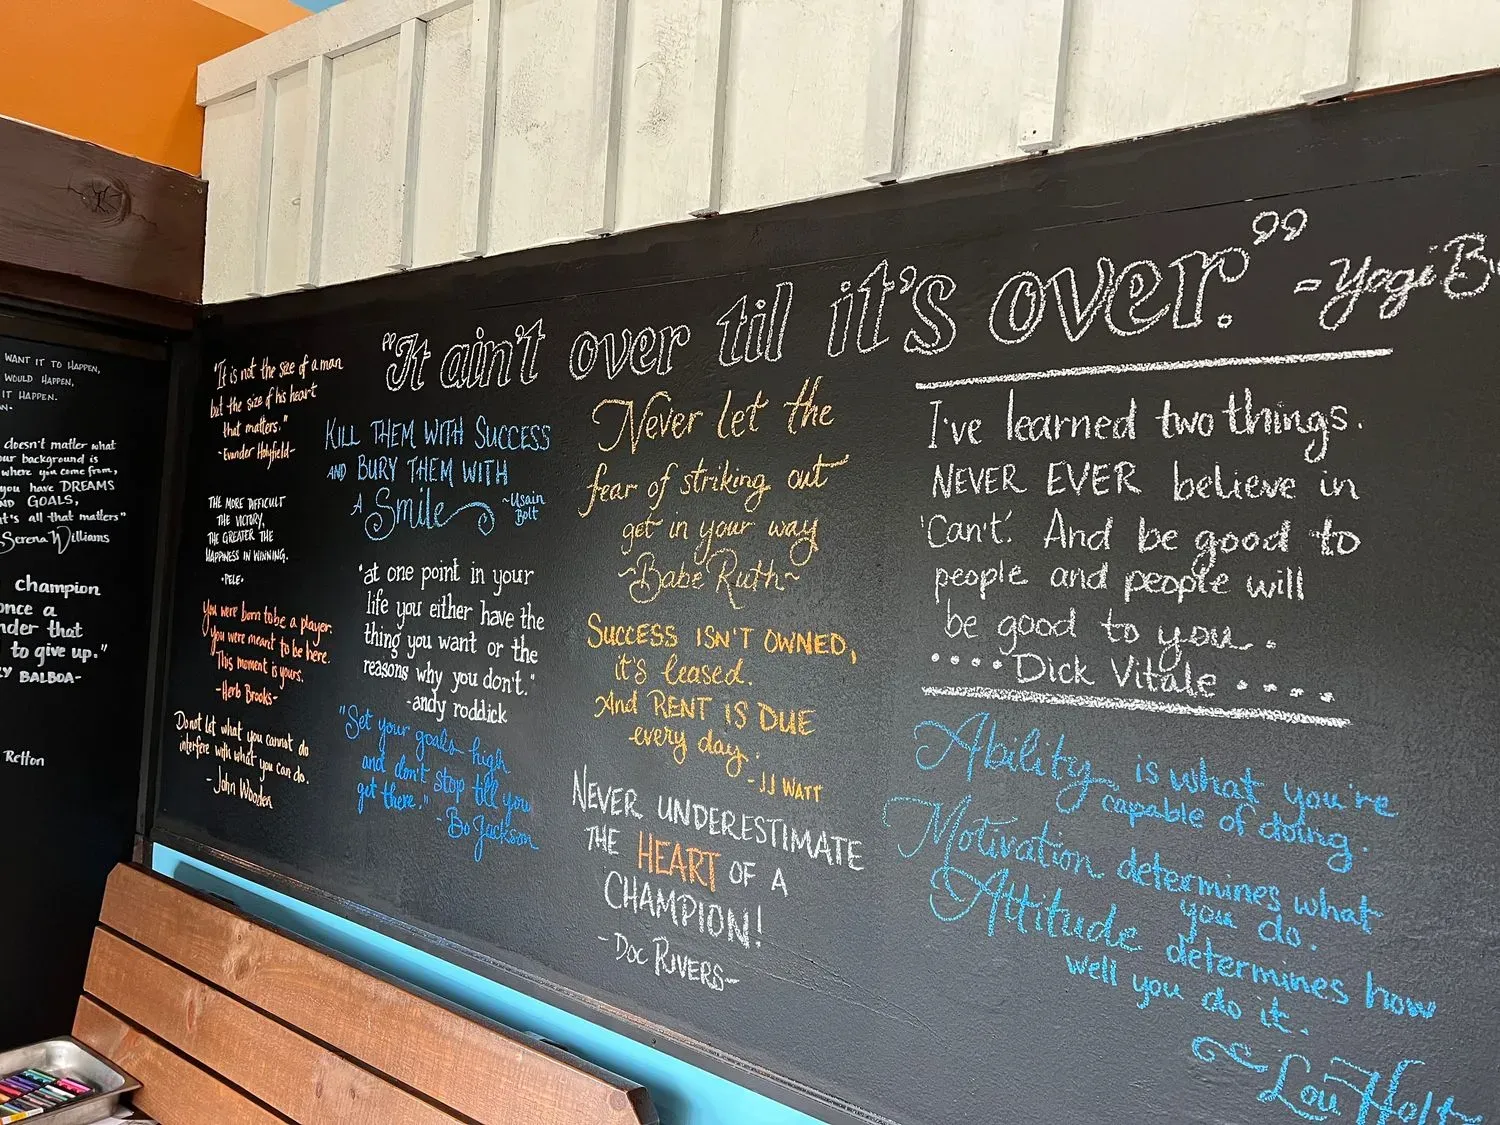 WANT IT TO HAPPEN,
WOULD HAPPEN,
IT HAPPEN.
doesn't matter what
our background is
where you come from,
you have DREAMS
ND GOALS,
t's all that matters"
Serena Williams
champion
once a
nder that
to give up."
Y BALBOA-
Retton
"It ain't over til it's over."
-Yogi B
"It is not the size of a man
but the size of his heart
that matters."
-Evander Holyfield-
THE MORE DIFFICULT
THE VICTORY,
THE GREATER THE
HAPPINESS IN WINNING.
•PELE•
You were born to be a player.
You were meant to be here.
This moment is yours.
-Herb Brooks-
Do not let what you cannot do
interfere with what you can do.
-John Wooden
KILL THEM WITH SUCCESS
AND BURY THEM WITH
A Smile
~Usain
Bolt
"at one point in your
life you either have the
thing you want or the
reasons why you don't."
-andy roddick
"Set your goals high
and don't stop till you
get there."
-Bo Jackson
Never let the
fear of striking out
get in your way
~Babe Ruth~
SUCCESS ISN'T OWNED,
it's leased.
And RENT IS DUE
every day.
-JJ WATT
NEVER UNDERESTIMATE
THE HEART OF A
CHAMPION!
-DOC RIVERS-
I've learned two things.
NEVER EVER believe in
'Can't'. And be good to
people and people will
be good to you.
....Dick Vitale.....
Ability is what you're
capable of doing.
Motivation determines what
you do.
Attitude determines how
well you do it.
~Lou Holt